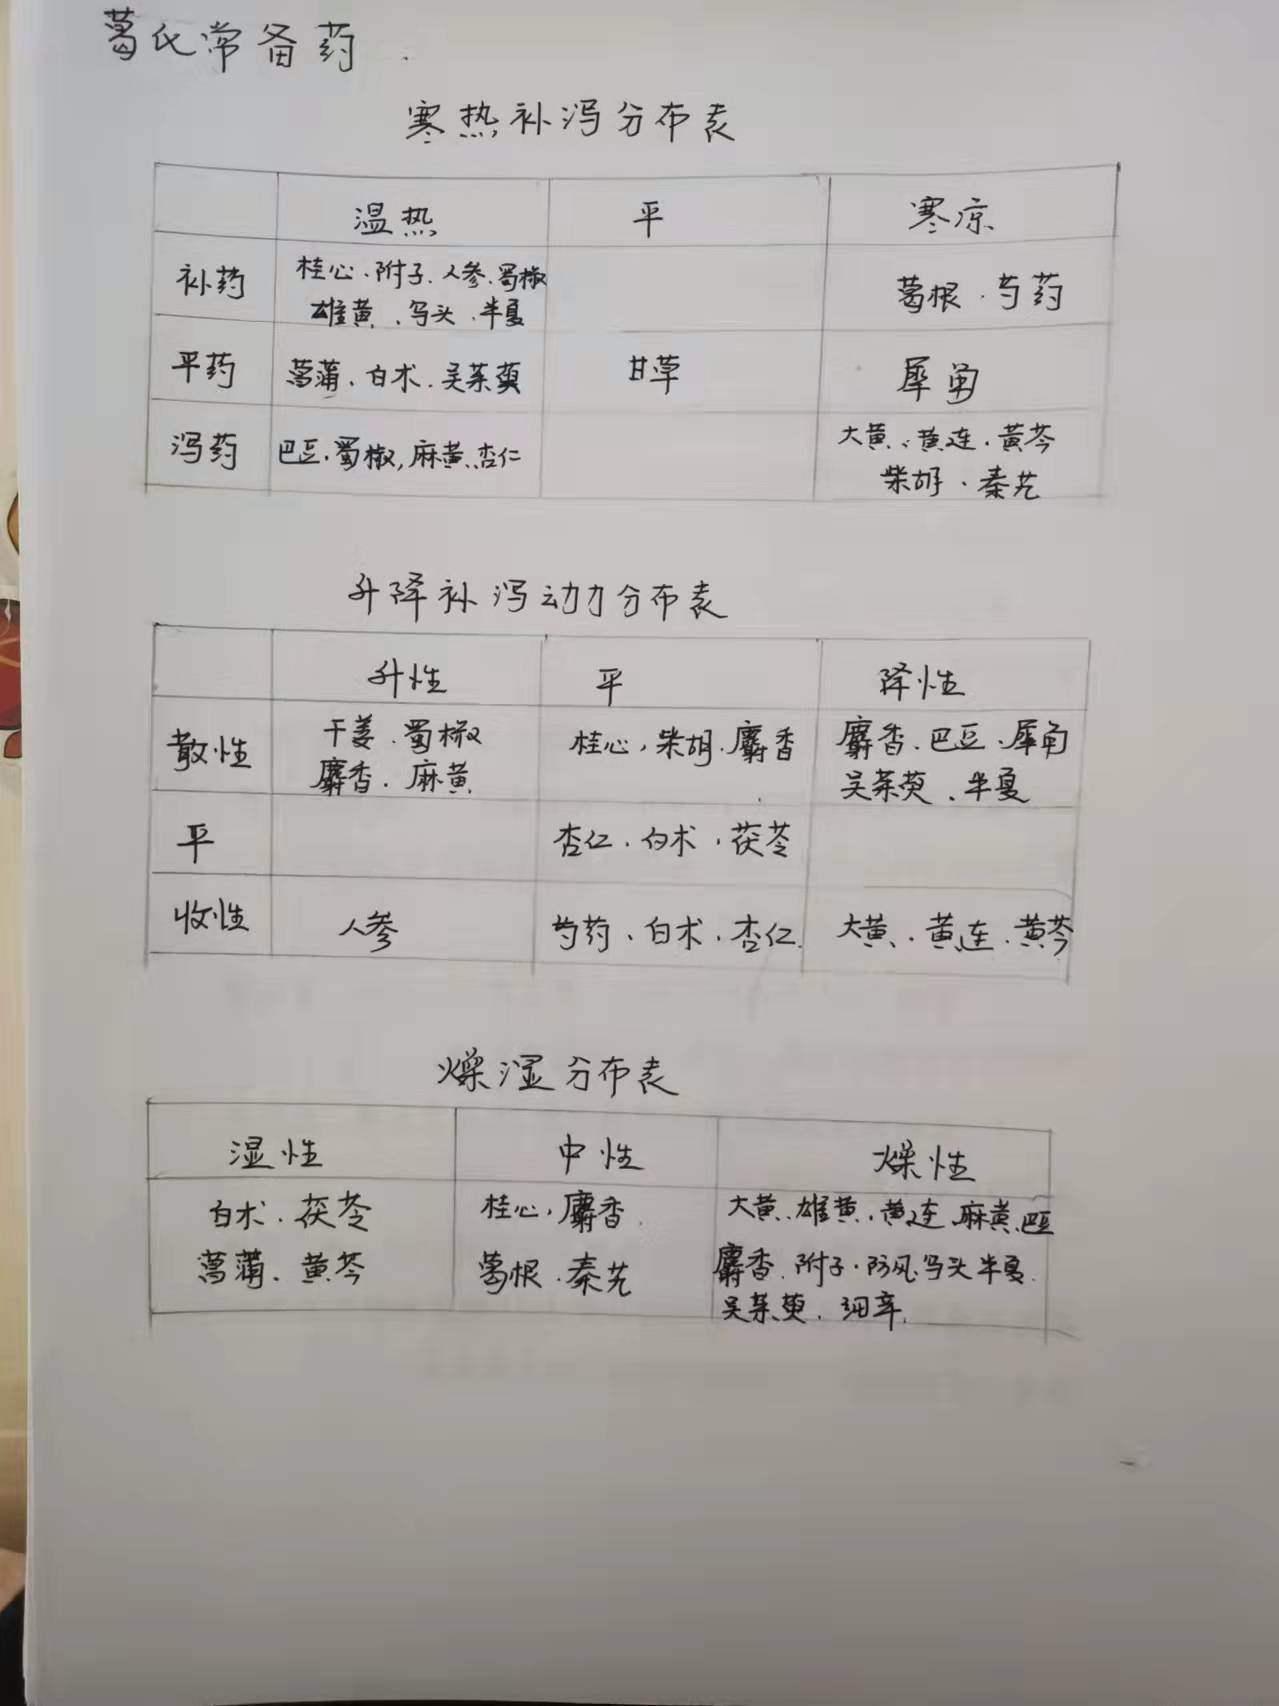 葛氏常备药.
寒热补泻分布表
温热 平 寒凉
补药 桂心.附子.人参.蜀椒 葛根.芍药
雄黄、乌头.半夏
平药 菖蒲、白术.吴茱萸 甘草 犀角
泻药 巴豆.蜀椒,麻黄.杏仁 大黄、黄连.黄芩
柴胡、秦艽
升降补泻动力分布表
升性 平 降性
散性 干姜.蜀椒 桂心,柴胡.麝香 麝香.巴豆.犀角
麝香.麻黄 吴茱萸、半夏
平 杏仁.白术.茯苓
收性 人参 芍药、白术.杏仁. 大黄、黄连.黄芩
燥湿分布表
湿性 中性 燥性
白术.茯苓 桂心,麝香. 大黄、雄黄.黄连.麻黄、巴豆
菖蒲、黄芩 葛根.秦艽 麝香.附子.防风.乌头半夏.
吴茱萸.细辛.